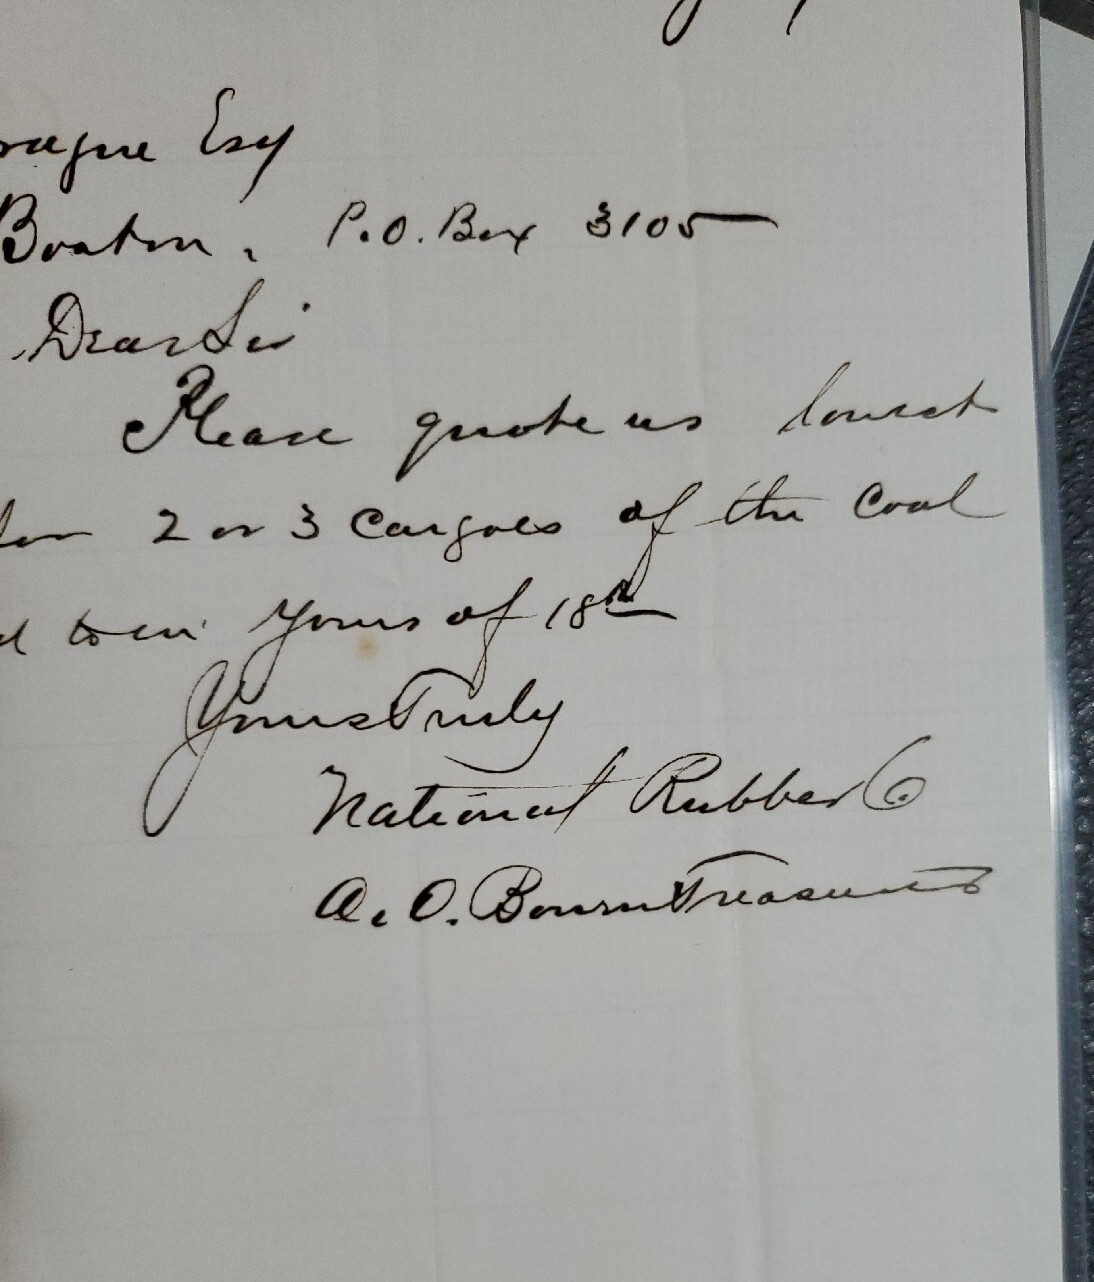 rague Esq
Boston, P.O. Box 3105
Dear Sir
Please quote us lowest
for 2 or 3 Cargoes of the Coal
d to in yours of 18th
Yours Truly
National Rubber Co.
A. O. Bourn Treasurer